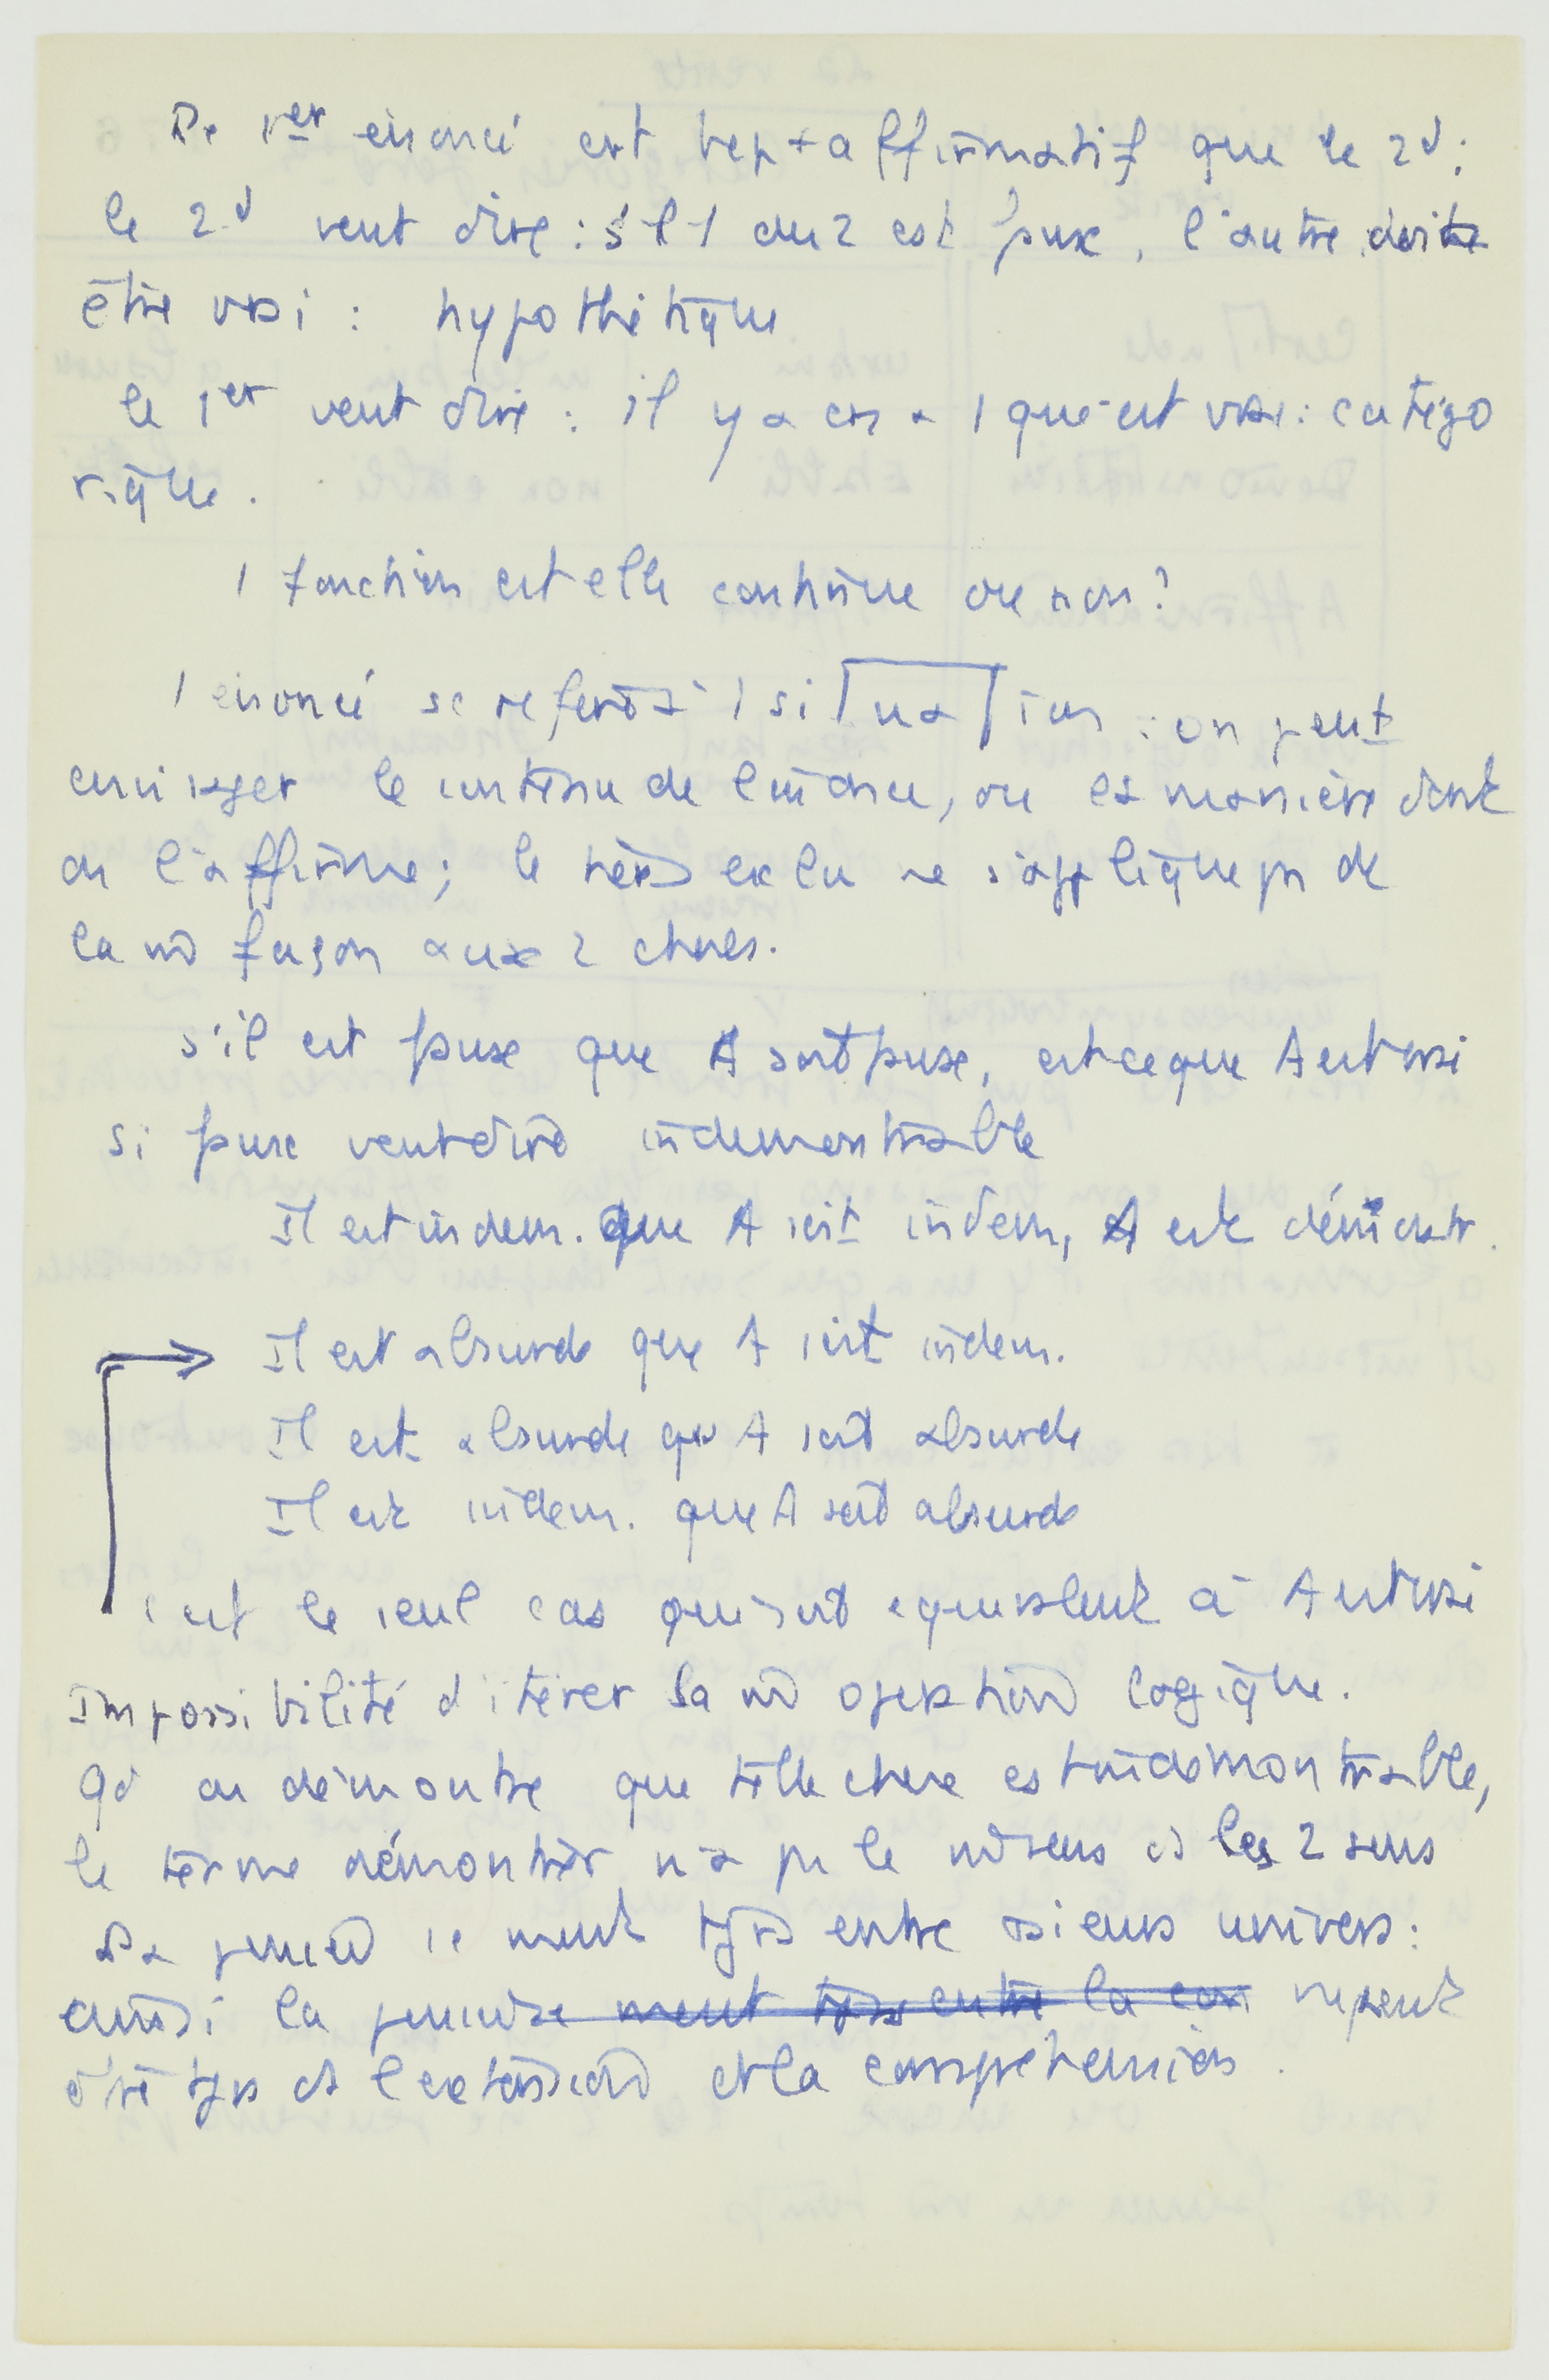 Le 1er énoncé est bcp + affirmatif que le 2d ;
le 2d veut dire : si l'1 des 2 est faux, l'autre doit
être vrai : hypothétique
le 1er veut dire : il y en a 1 qui est vrai : catégo
rique.
1 fonction est elle continue ou non ?
1 énoncé se réfère à 1 situation : on peut
envisager le contenu de l'énoncé, ou la manière dont
on l'affirme ; le tiers exclu ne s'applique pas de
la m̂ façon aux 2 choses.
s'il est faux que A soit faux, est ce que A est vrai
si faux veut dire indémontrable
Il est indém. que A soit indém, A est démontr.
Il est absurde que A soit indém.
Il est absurde que A soit absurde
Il est indém. que A soit absurde
c'est le seul cas qui soit équivalent à A est vrai
Impossibilité d'itérer la m̂ opération logique.
Qd on démontre que telle chose est indémontrable,
le terme démontrer n'a pas le m̂ sens ds les 2 sens
La pensée se meut tjrs entre +sieurs univers :
ainsi la pensée meut tjrs entre la com ne peut
être tjrs ds l'extension et la compréhension.